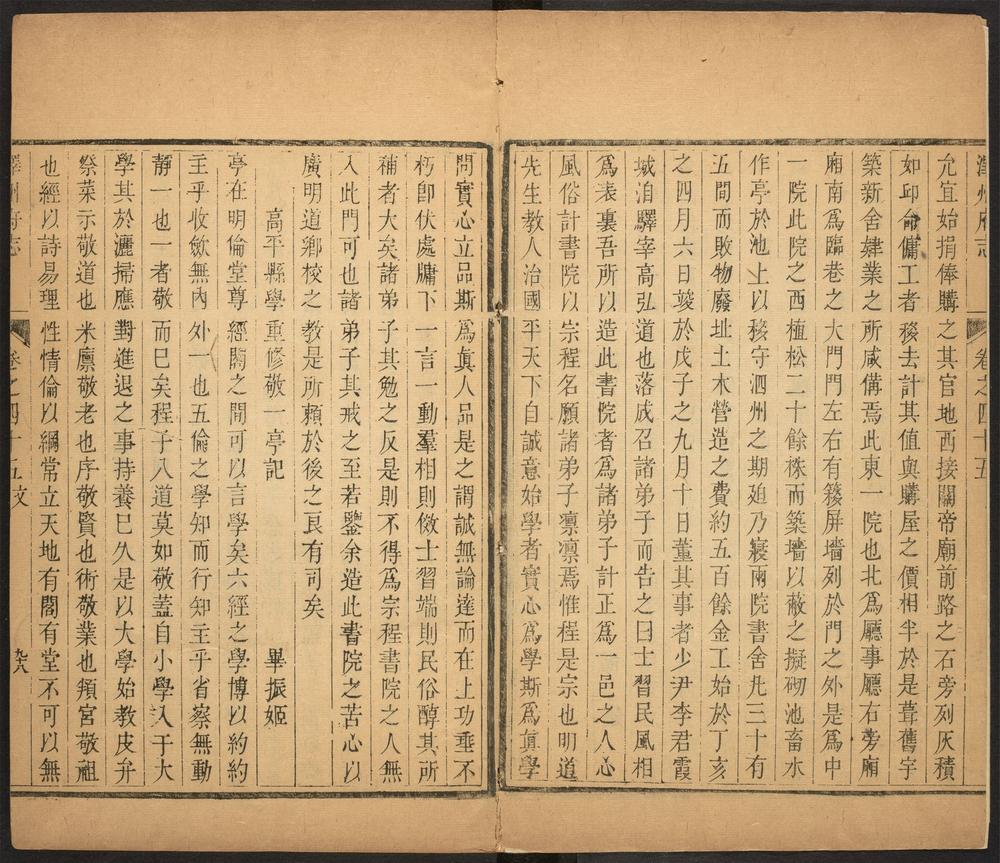 澤州府志 卷之四十五
允宜始捐俸購之其官地西接關帝廟前路之石旁列灰積
如邱命傭工者移去計其值與購屋之價相半於是葺舊宇
築新舍肄業之所咸備焉此東一院也北為廳事廳右旁廂
廂南為臨巷之大門門左右有簃屏墻列於門之外是為中
一院此院之西植松二十餘株而築墻以蔽之擬砌池畜水
作亭於池上以移守泗州之期廹乃寢兩院書舍凡三十有
五間而敗物廢址土木營造之費約五百餘金工始於丁亥
之四月六日竣於戊子之九月十日董其事者少尹李君霞
城洎驛宰高弘道也落成召諸弟子而告之曰士習民風相
為表裏吾所以造此書院者為諸弟子計正為一邑之人心
風俗計書院以宗程名願諸弟子凛凛焉惟程是宗也明道
先生教人治國平天下自誠意始學者實心為學斯為真學
問實心立品斯為真人品是之謂誠無論達而在上功垂不
朽卽伏處牖下一言一動羣相則傚士習端則民俗醇其所
補者大矣諸弟子其勉之反是則不得為宗程書院之人無
入此門可也諸弟子其戒之至若鑒余造此書院之苦心以
廣明道鄉校之教是所賴於後之良有司矣
高平縣學重修敬一亭記 畢振姬
亭在明倫堂尊經閣之間可以言學矣六經之學博以約約
主乎收斂無內外一也五倫之學知而行知主乎省察無動
靜一也一者敬而已矣程子入道莫如敬蓋自小學入于大
學其於灑掃應對進退之事持養已久是以大學始教皮弁
祭菜示敬道也米廪敬老也序敬賢也術敬業也頖宮敬祖
也經以詩易理性情倫以綱常立天地有閣有堂不可以無
澤州府志 卷之四十五文 九八